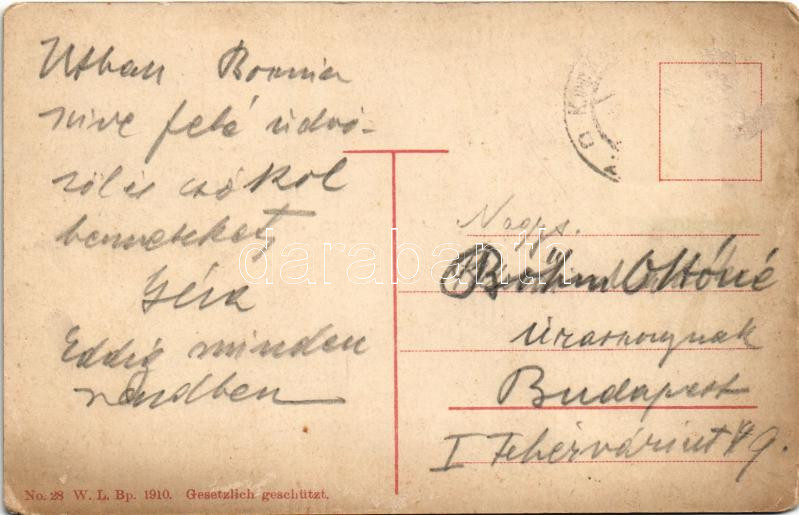 Utban Bosnia
sive felé üdvö-
zöl és csókol
benneteket
Géza
Eddig minden
rendben
Nagys.
Böhm Ottóné
Úrasszonynak
Budapest
I Fehérvári út 49.
No. 28 W. L. Bp. 1910. Gesetzlich geschützt.
darabanth